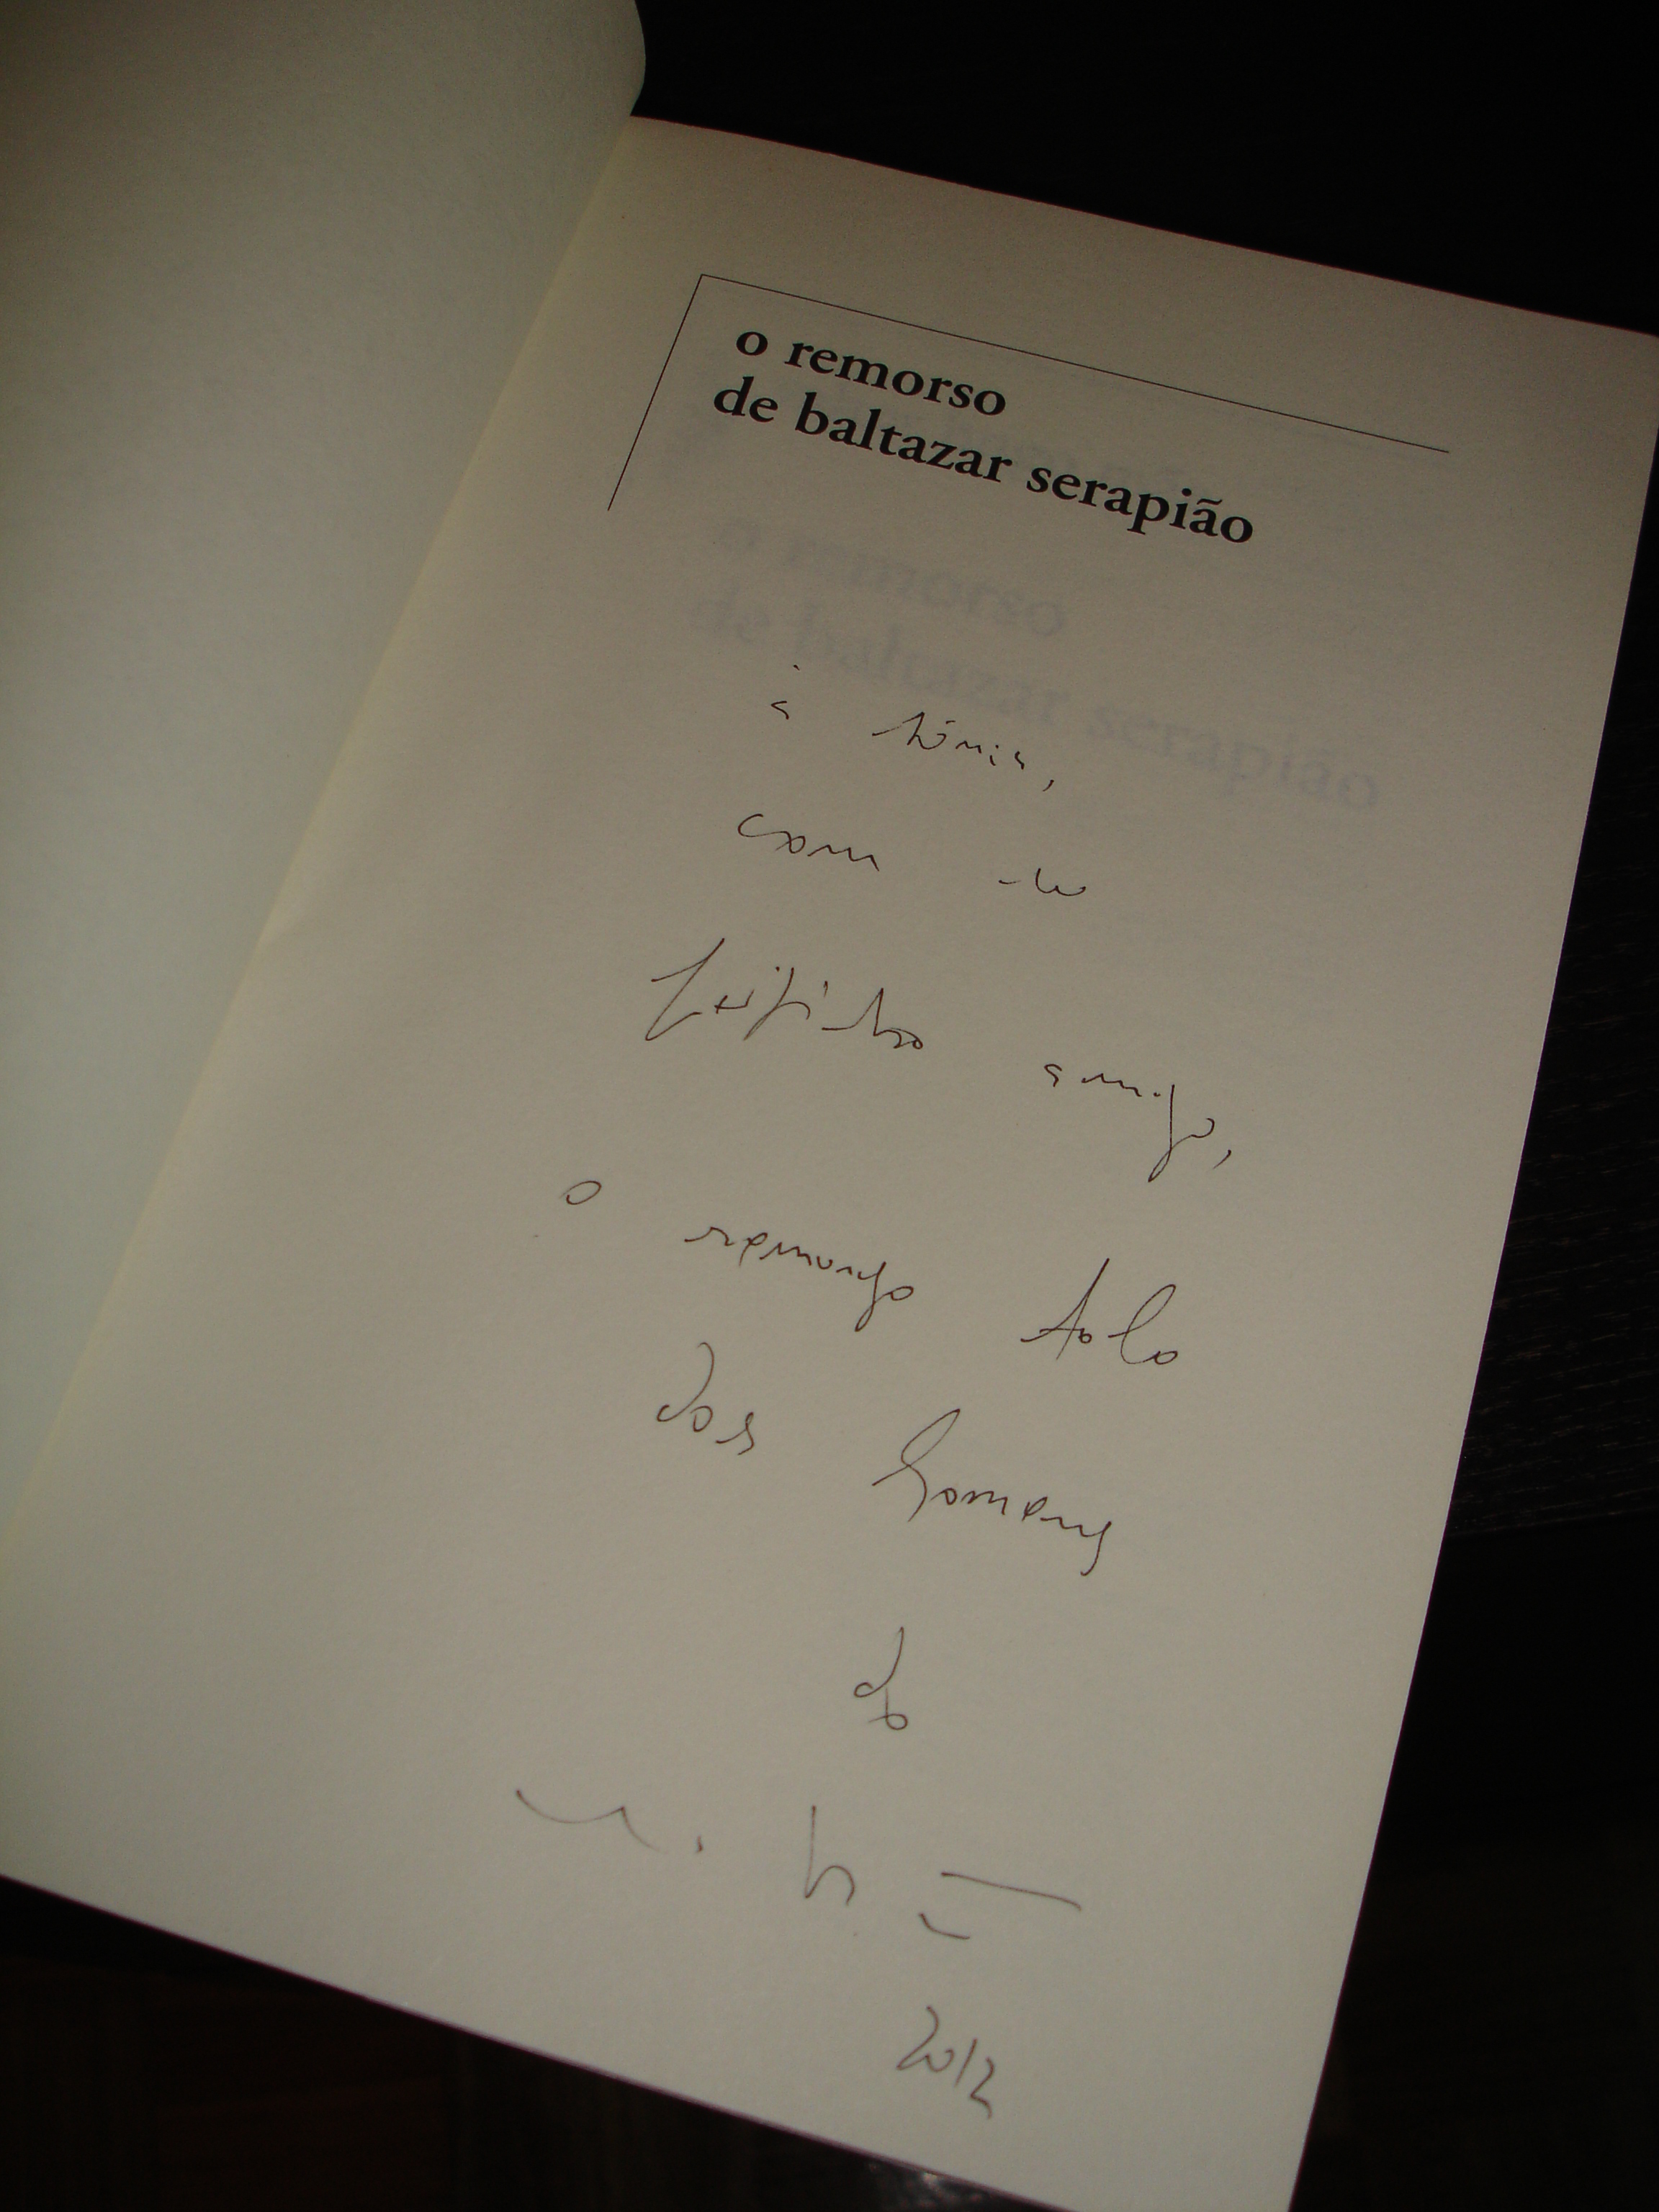 o remorso
de baltazar serapião
à tónia,
com um
beijinho amigo,
o remorso tolo
dos homens
do
2012